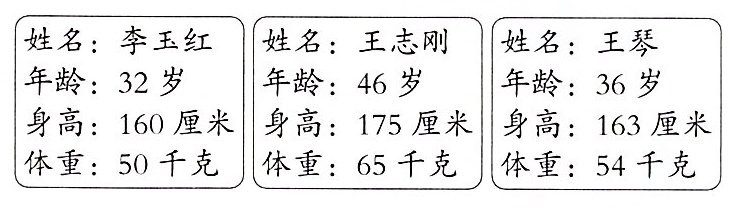 姓名：李玉红
年龄：32 岁
身高：160 厘米
体重：50 千克
姓名：王志刚
年龄：46 岁
身高：175 厘米
体重：65 千克
姓名：王琴
年龄：36 岁
身高：163 厘米
体重：54 千克